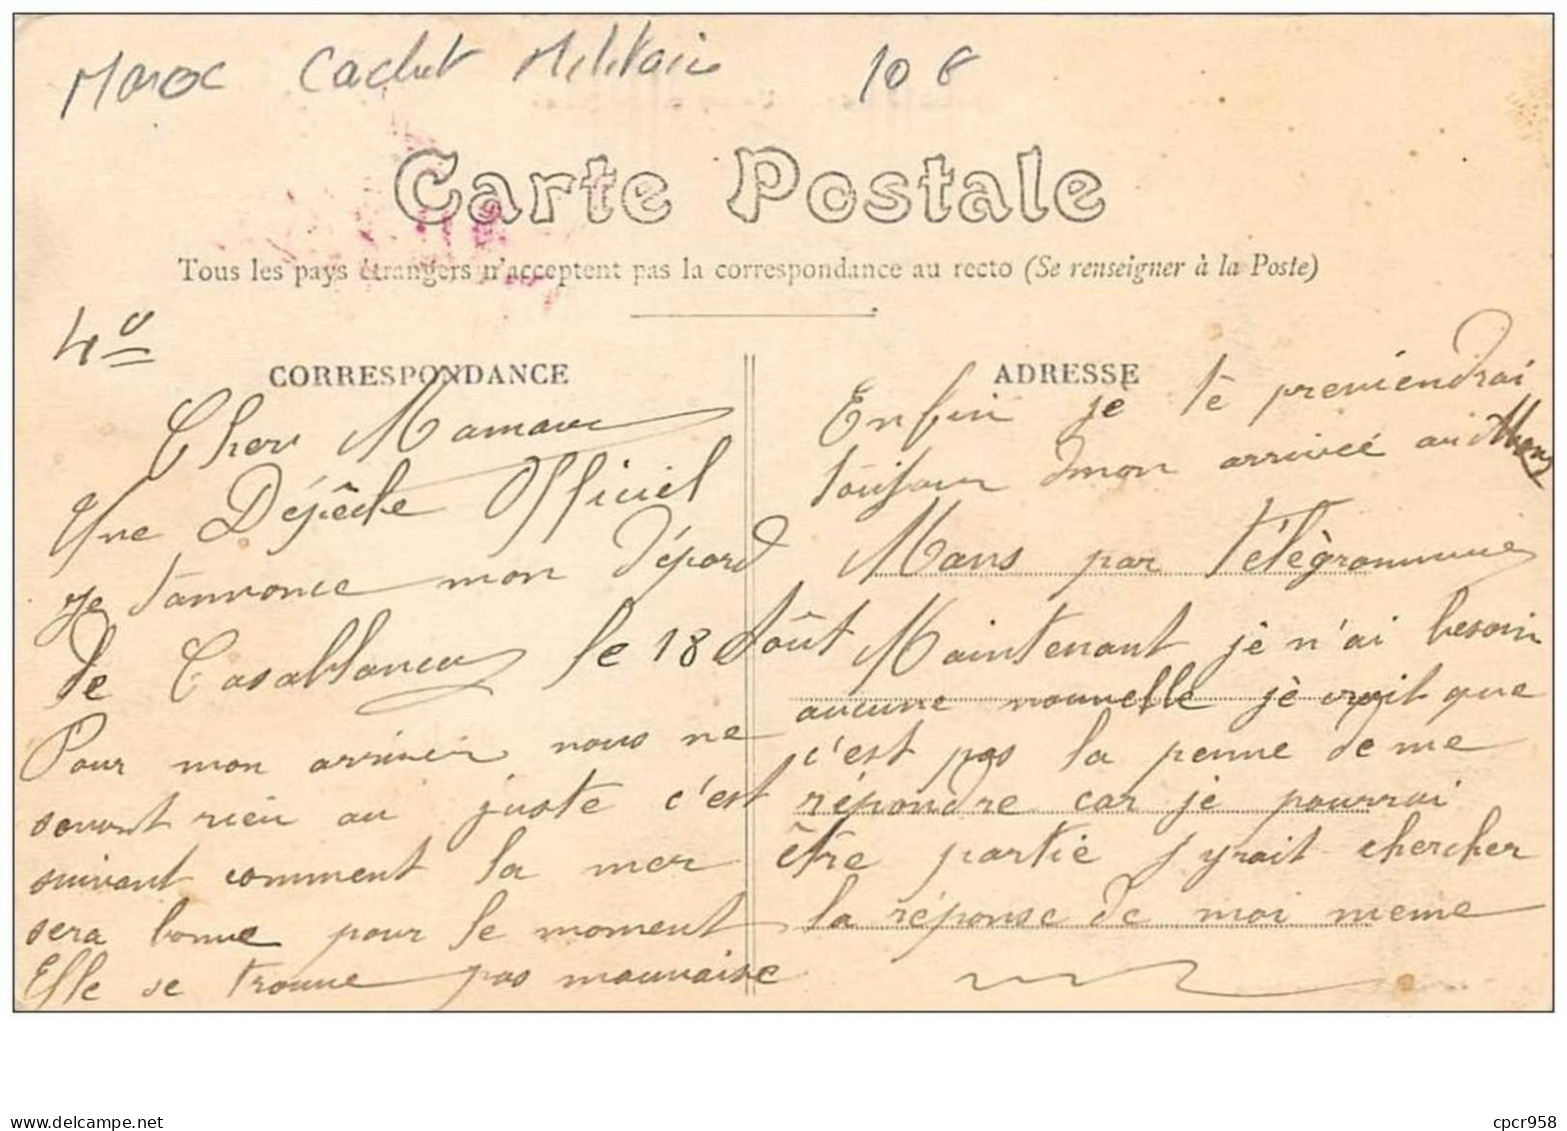 Maroc Cachet Militaire 10 €
Carte Postale
Tous les pays étrangers n'acceptent pas la correspondance au recto (Se renseigner à la Poste)
4º
CORRESPONDANCE
Cher Maman
Une Dépêche Officiel
Je t'annonce mon Dépard
de Casablanca le 18 Aôut
Pour mon arriver nous ne
savont rien au juste c'est
suivant comment la mer
sera bonne pour le moment
Elle se trouve pas mauvaise
ADRESSE
Enfin je tè previendrai
toujour de mon arrivée au
Mans par Télègramme
Maintenant jè n'ai besoin
aucune nouvelle jè croit que
c'est pas la penne de me
répondre car je pourrai
être partie j'yrait chercher
la réponse de moi meme
www.delcampe.net
cpcr958